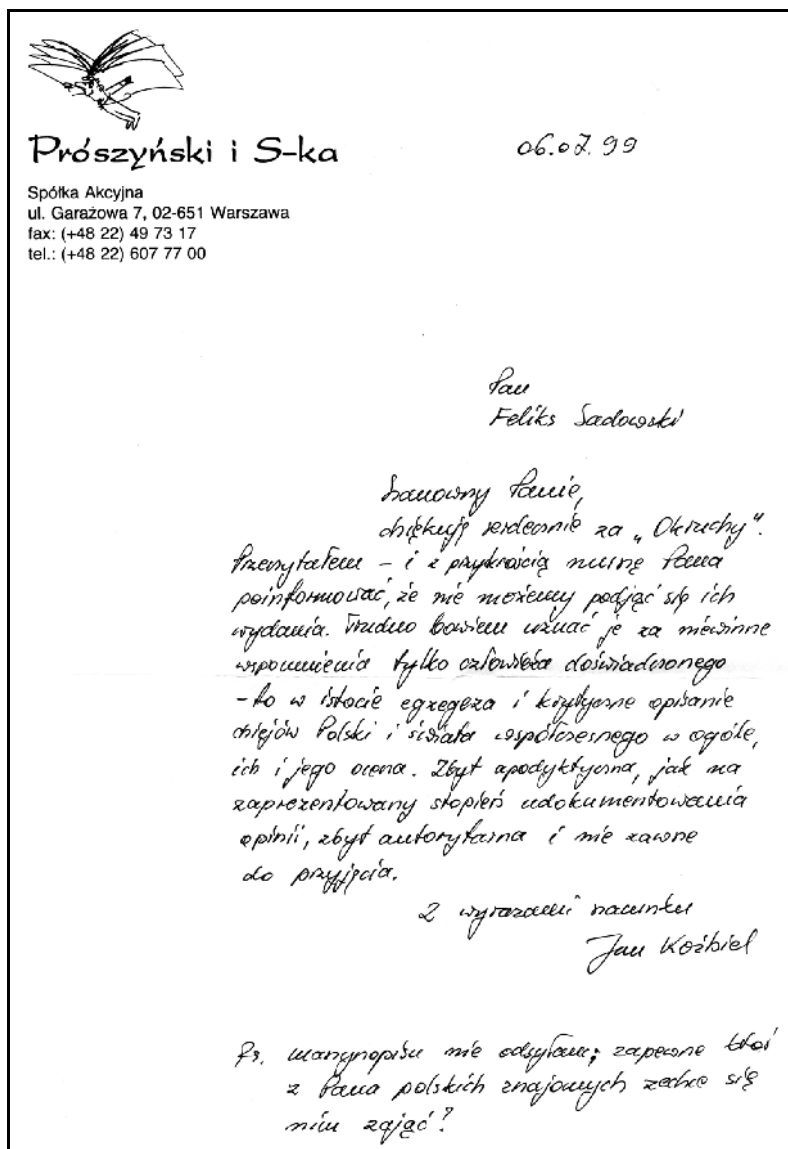 Prószyński i S-ka
06.07.99
Spółka Akcyjna
ul. Garażowa 7, 02-651 Warszawa
fax: (+48 22) 49 73 17
tel.: (+48 22) 607 77 00
Pan
Feliks Sadowski
Szanowny Panie,
dziękuję serdecznie za „Okruchy".
Przeczytałem – i z przykrością muszę Pana
poinformować, że nie możemy podjąć się ich
wydania. Trudno bowiem uznać je za niewinne
wspomnienia tylko człowieka doświadczonego
– to w istocie egzegeza i krytyczne opisanie
dziejów Polski i świata współczesnego w ogóle,
ich i jego ocena. Zbyt apodyktyczna, jak na
zaprezentowany stopień udokumentowania
opinii, zbyt autorytarna i nie zawsze
do przyjęcia.
Z wyrazami szacunku
Jan Koźbiel
Ps. maszynopisu nie odsyłam; zapewne ktoś
z Pana polskich znajomych zechce się
nim zająć?